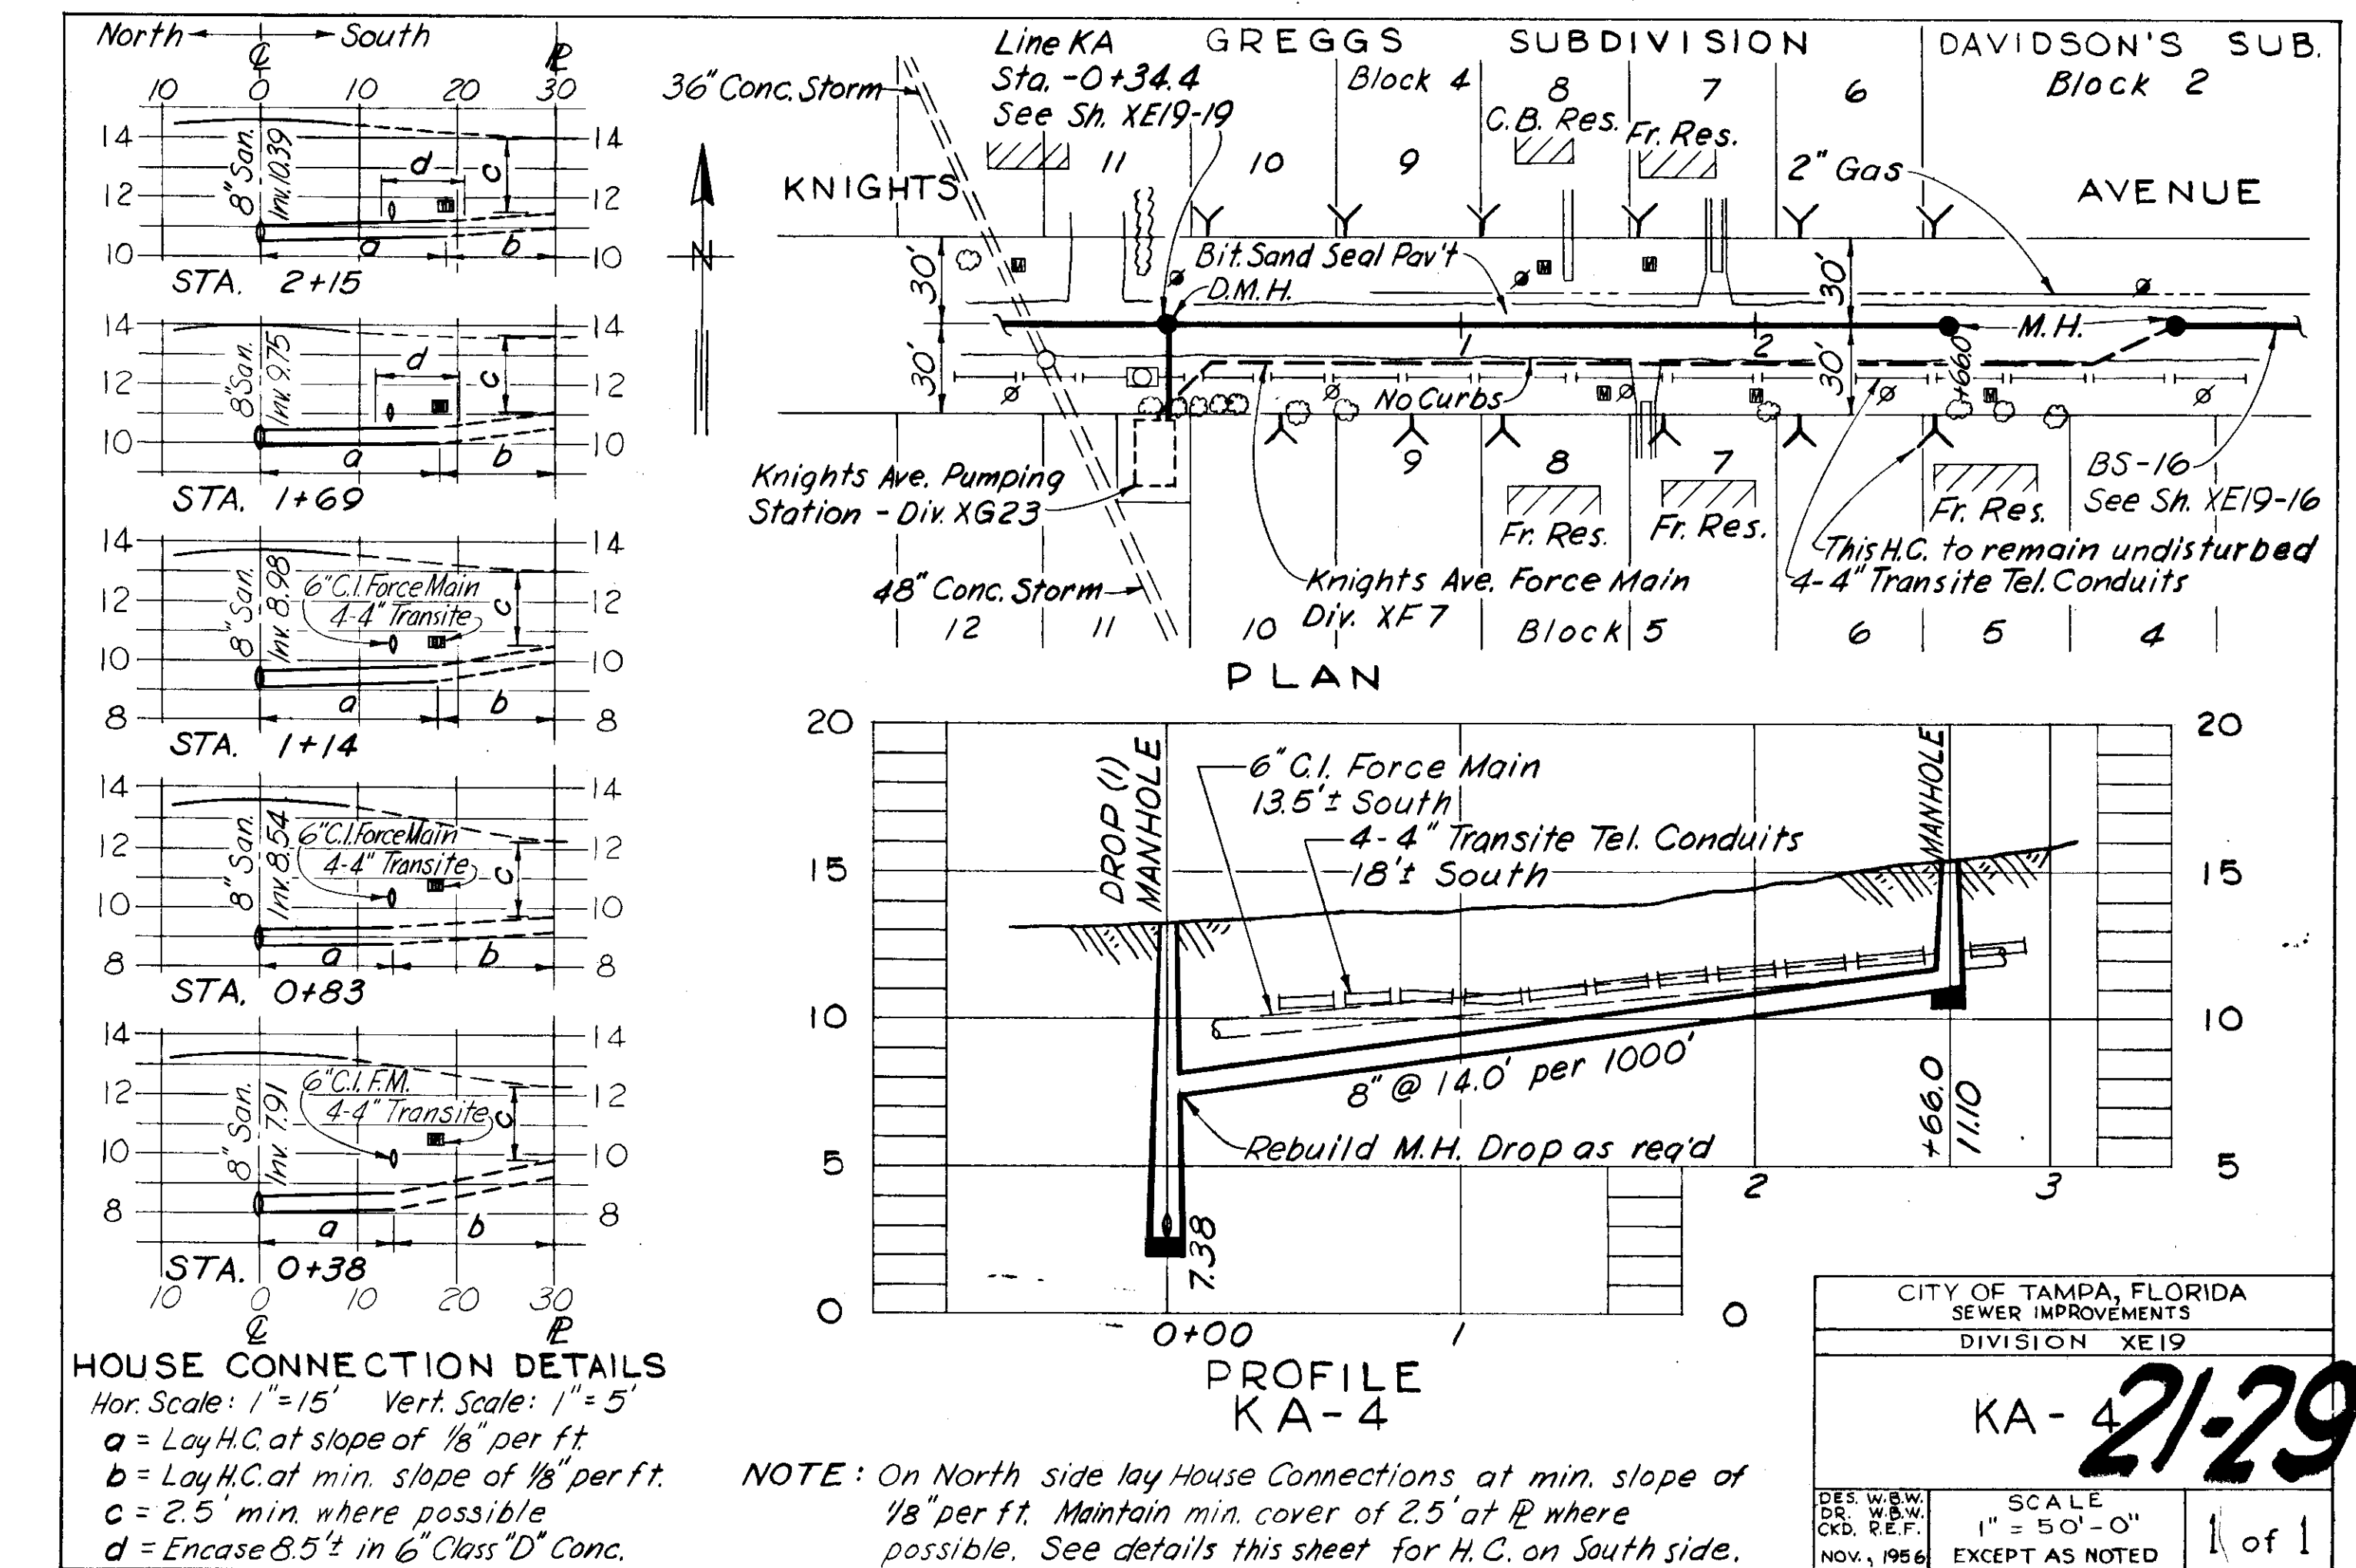 North South
℄ ⅊
10 0 10 20 30
14 14
12 12
10 10
8" San.
Inv. 10.39
d
c
a b
STA. 2+15
14 14
12 12
10 10
8" San.
Inv. 9.75
d
c
a b
STA. 1+69
14 14
12 12
10 10
8 8
8" San.
Inv. 8.98
6" C.I. Force Main
4-4" Transite
c
a b
STA. 1+14
14 14
12 12
10 10
8 8
8" San.
Inv. 8.54
6" C.I. Force Main
4-4" Transite
c
a b
STA. 0+83
14 14
12 12
10 10
8 8
8" San.
Inv. 7.91
6" C.I. F.M.
4-4" Transite
c
a b
STA. 0+38
10 0 10 20 30
℄ ⅊
HOUSE CONNECTION DETAILS
Hor. Scale: 1"=15' Vert. Scale: 1"=5'
a = Lay H.C. at slope of 1/8" per ft.
b = Lay H.C. at min. slope of 1/8" per ft.
c = 2.5' min. where possible
d = Encase 8.5'± in 6" Class "D" Conc.
Line KA
Sta. -0+34.4
See Sh. XE19-19
GREGGS SUBDIVISION
Block 4
DAVIDSON'S SUB.
Block 2
36" Conc. Storm
11 10 9 8 7 6
C.B. Res.
Fr. Res.
2" Gas
KNIGHTS AVENUE
N
30'
30'
Bit. Sand Seal Pav't
D.M.H.
30'
30'
1 2
M.H.
+66.0
No Curbs
Knights Ave. Pumping
Station - Div. XG23
9 8 7
Fr. Res.
Fr. Res.
Fr. Res.
BS-16
See Sh. XE19-16
This H.C. to remain undisturbed
4-4" Transite Tel. Conduits
48" Conc. Storm
Knights Ave. Force Main
Div. XF7
12 11 10 Block 5 6 5 4
PLAN
20 20
15 15
10 10
5 5
0 0
DROP (1)
MANHOLE
6" C.I. Force Main
13.5'± South
4-4" Transite Tel. Conduits
18'± South
MANHOLE
8" @ 14.0' per 1000'
Rebuild M.H. Drop as req'd
7.38
+66.0
11.10
0+00 1 2 3
PROFILE
KA-4
NOTE: On North side lay House Connections at min. slope of
1/8" per ft. Maintain min. cover of 2.5' at ⅊ where
possible. See details this sheet for H.C. on South side.
CITY OF TAMPA, FLORIDA
SEWER IMPROVEMENTS
DIVISION XE19
KA-4
21-29
DES. W.B.W.
DR. W.B.W.
CKD. R.E.F.
NOV., 1956
SCALE
1" = 50'-0"
EXCEPT AS NOTED
1 of 1